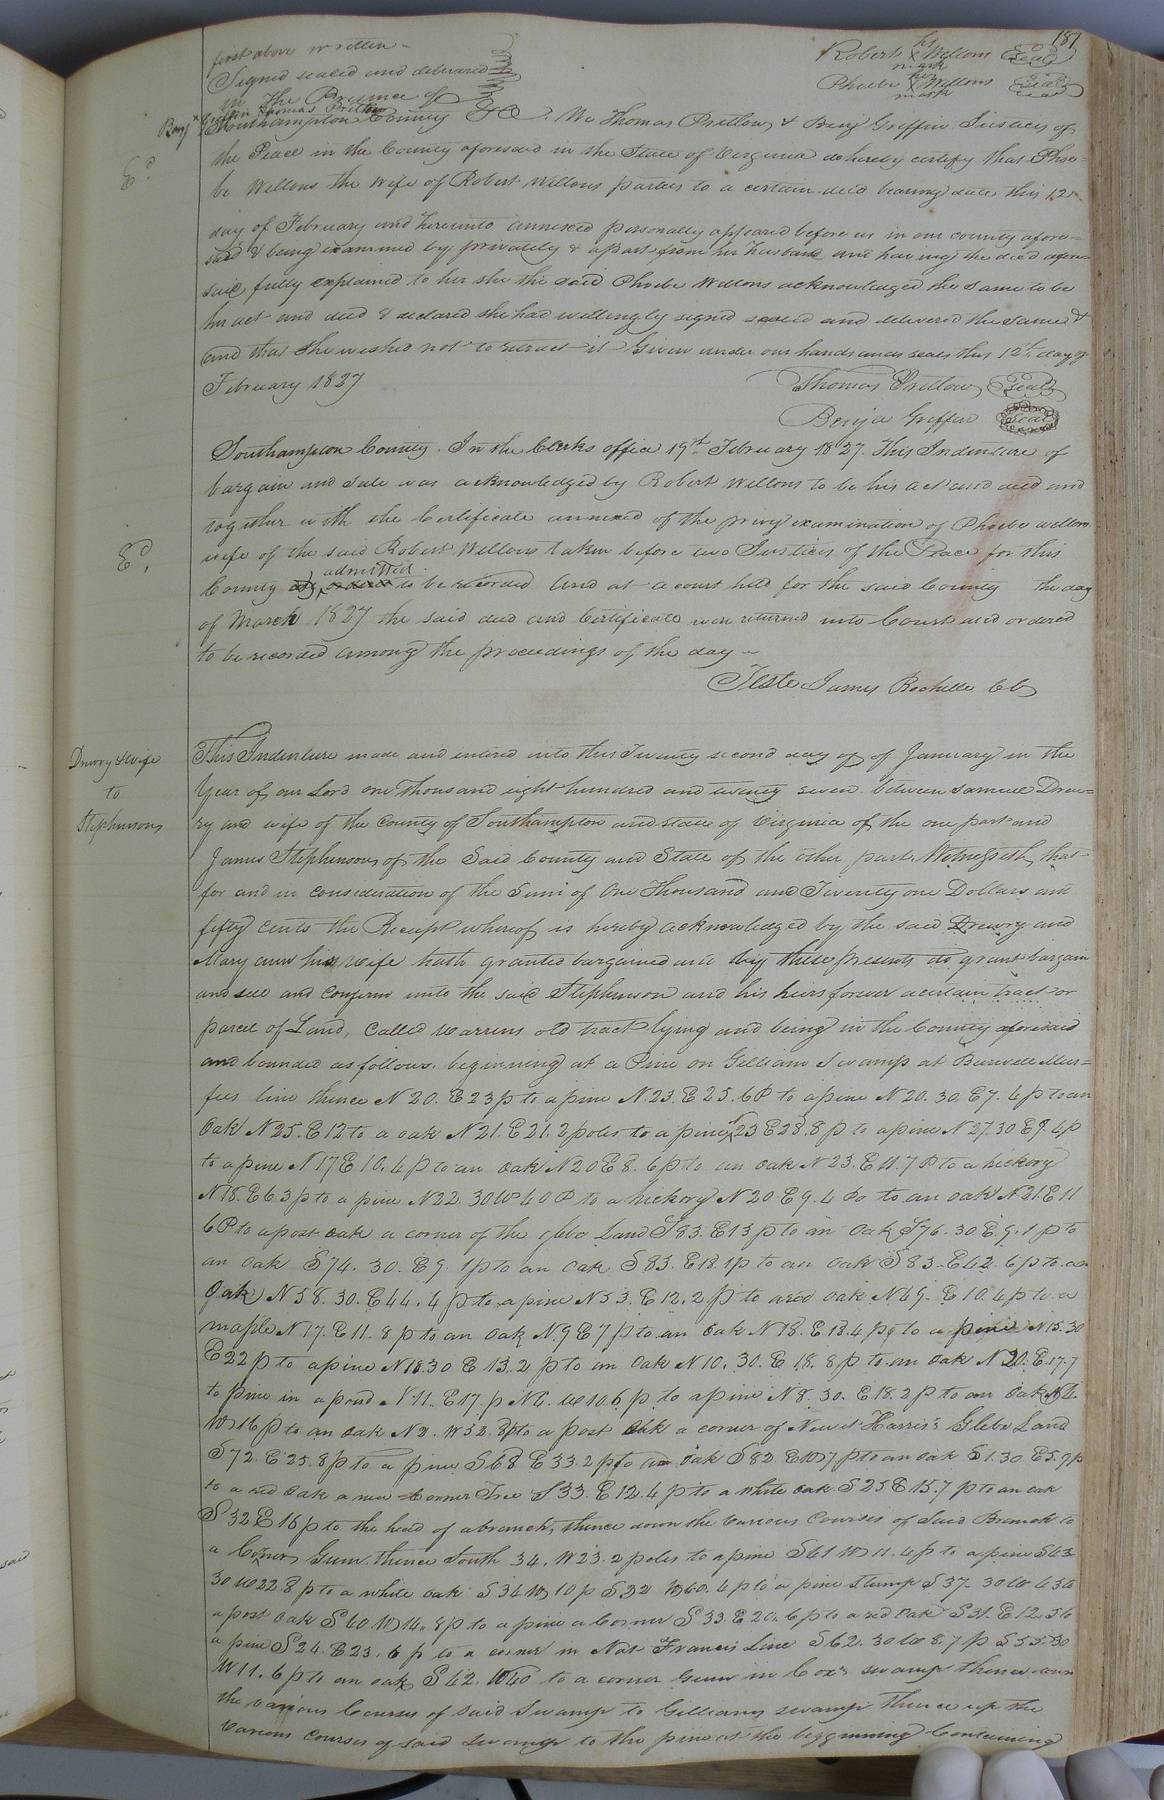 181
first above written -
Signed sealed and delivered
in the Presence of
Benj Griffin Thomas Pretlow
Robert his X mark Wellons Seal
Phoebe her X mark Wellons Seal
Southampton County We Thomas Pretlow & Benj Griffin Justices of
Ed.
the Peace in the County aforesaid in the State of Virginia do hereby certify that Phoe=
be Wellons the Wife of Robert Wellons parties to a certain deed bearing date this 12
day of February and hereunto annexed personally appeared before us in our county afore=
said & being examined by privately & apart from her husband and having the deed afore
said fully explained to her she the said Phoebe Wellons acknowledged the same to be
her act and deed & declared she had willingly signed sealed and delivered the same &
and that she wished not to retract it Given under our hands and seals this 12th day of
February 1827
Thomas Pretlow Seal
Benja Griffin Seal
Southampton County. In the Clerks office 19th February 1827. This Indenture of
bargain and sale was acknowledged by Robert Wellons to be his act and deed and
together with the Certificate annexed of the privy examination of Phoebe Wellons
Ed.
wife of the said Robert Wellons taken before two Justices of the Peace for this
County admitted to be recorded And at a court held for the said County the day
of March 1827 the said deed and Certificate were returned into Court and ordered
to be recorded among the proceedings of the day -
Teste James Rochelle CC
Drewry & Wife
to
Stephenson
This Indenture made and entered into this Twenty second day of of January in the
Year of our Lord one thousand eight hundred and twenty seven between Samuel Drew=
ry and wife of the County of Southampton and state of Virginia of the one part and
James Stephenson of the Said County and State of the other part Witnesseth, that
for and in consideration of the Sum of One Thousand and Twenty one Dollars and
fifty cents the Receipt whereof is hereby acknowledged by the said Drewry and
Mary ann his wife hath granted bargained and by these presents do grant bargain
and sell and confirm unto the said Stephenson and his heirs forever a certain tract or
parcel of Land, Called Warrens old tract lying and being in the County aforesaid
and bounded as follows. beginning at a Pine on Gilliams Swamp at Burwell Mur=
fees line thence N 20. E 23 p to a pine N 23. E 25. 6 P to a pine N 20. 30. E 7. 6 p to an
Oak N 25. E 12 to a oak N 21. E 21. 2 poles to a pine 23 E 28. 8 p to a pine N 27. 30 E 9. 4 p
to a pine N 17 E 10. 4 p to an oak N 20 E 8. 6 p to an oak N 23. E 11. 7 P to a hickory
N 18. E 63 p to a pine N 22. 30 W 40 P to a hickory N 20 E 9. 4 Po to an oak N 21. E 11
6 P to a post oak a corner of the glebe Land S 83. E 13 p to an Oak S 76. 30 E. 9. 1 p to
an oak S 74. 30. E 9. 1 p to an Oak S 83. E 18. 1 p to an oak S 83. E 42. 6 p to an
Oak N 58. 30. E 44. 4 p to a pine N 53. E 12. 2 p to a red oak N 49. E 10. 4 p to a
maple N 17. E 11. 8 p to an Oak N. 9 E 7 p to an Oak N 18. E 18. 4 p to a pine N 15. 30
E 22 p to a pine N 18. 30 E 13. 2 p to an Oak N 10. 30. E 18. 8 p to an oak N 20. E 17. 7
to pine in a pond N 11. E 17. p N 4. W 10. 6 p to a pine N 8. 30. E 18. 2 p to an Oak N 4.
W 16 p to an oak N 2. W 52. 8 p to a post oak a corner of Newit Harris's Glebe Land
S 72. E 25. 8 p to a pine S 68 E 33. 2 p to an Oak S 82. E 10 7 p to an oak S 1. 30 E 5. 9 p
to a red Oak a new Corner Tree S 33. E 12. 4 p to a white oak S 25 E 15. 7 p to an oak
S 32 E 16 p to the head of a branch, thence down the Various Courses of Said Branch to
a Corner Gum. thence South 34. W 23. 2 poles to a pine S 41 W 11. 4 p to a pine S 43
30 W 22. 8 p to a white oak S 34 W 10 p S 32 W 60. 4 p to a pine stump S 37. 30 W 43 to
a post Oak S 40 W 14. 8 p to a pine a Corner S 33. E 20. 6 p to a red Oak S 31. E 12. 5 to
a pine S 24. E 23. 6 p to a corner in Nat Francis Line S 62. 30 W 8. 7 p S 55. 30
W 11. 6 p to an oak S 42. W 40 to a corner Gum in Cox's swamp thence down
the various Courses of said Swamp to Gilliams swamp thence up the
Various Courses of said Swamp to the pine at the beginning Containing